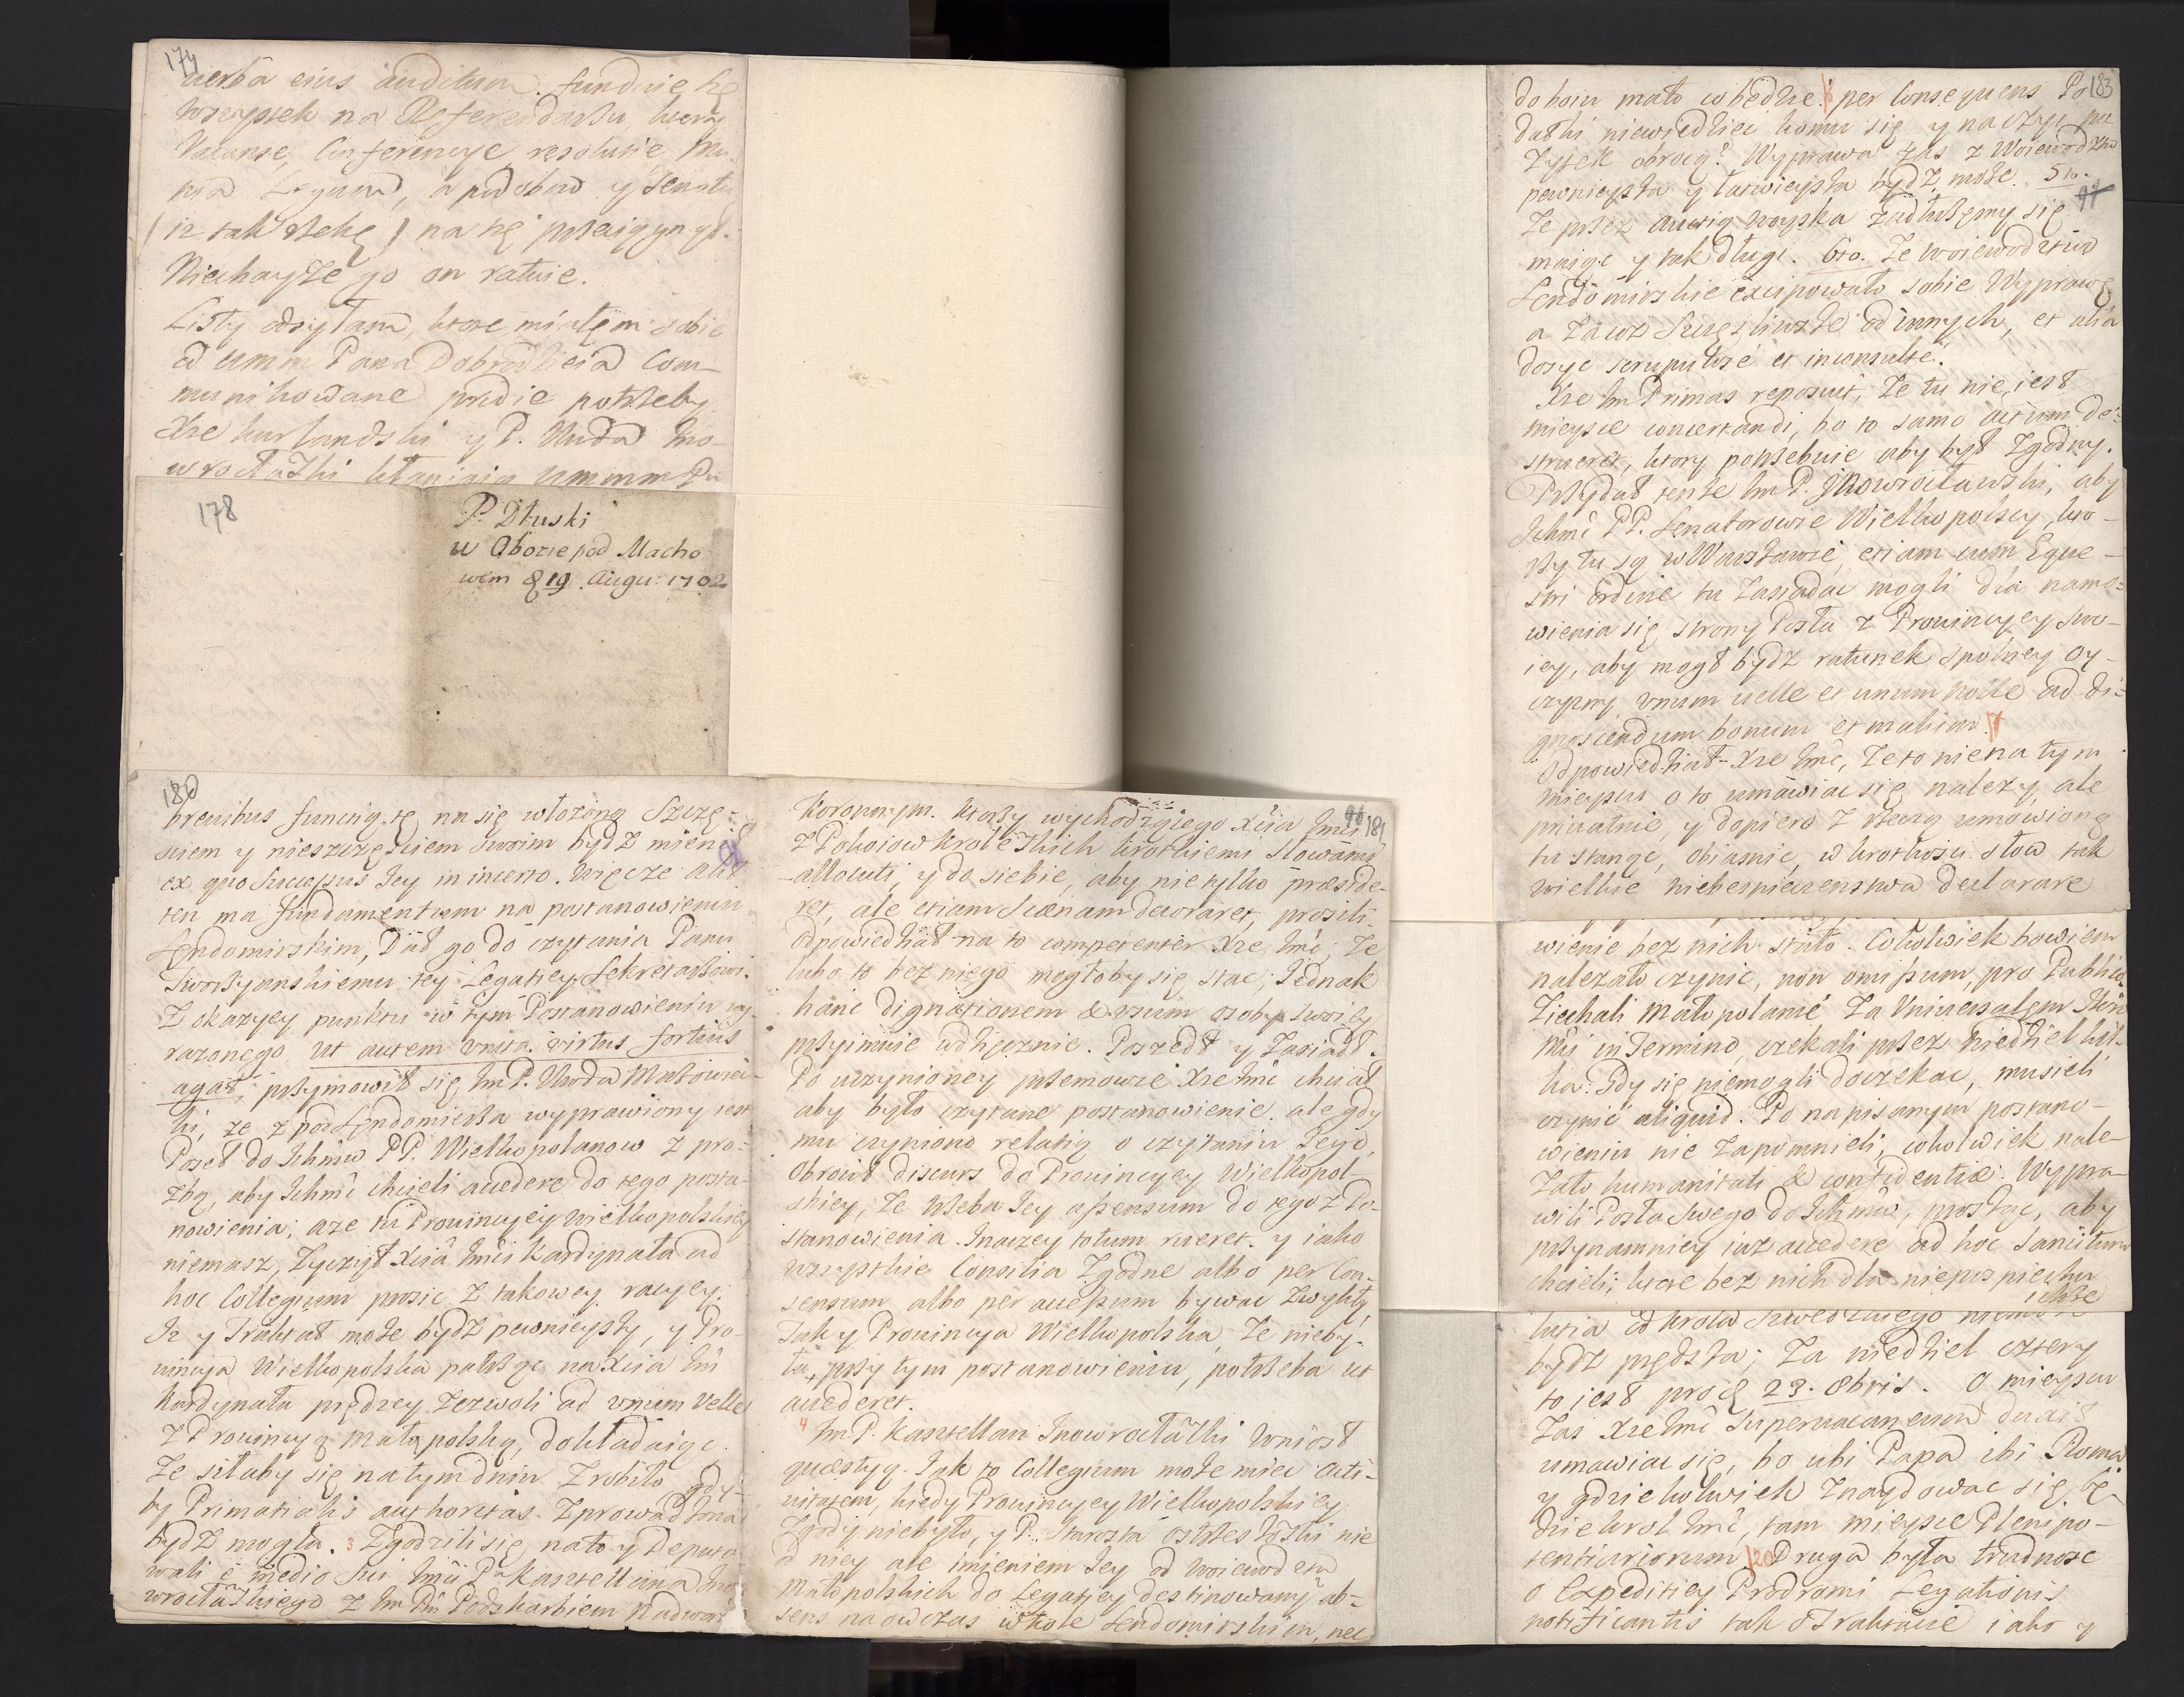 174
verba eius auditum. funduie się
wszystek na Referendarsu ktory
Vacanse, Conferencye, resolutie
na się przeiął.
Niechayże go on ratuie.
Listy odsyłam, ktore miałem sobie
od Pana Dobrodzieia Com-
munikowane pridie potrzeby
Xże kurlandski y P. Wuda Ino-
wrocłaski kłaniaią
178
P. Dłuski
w Obozie pod Macho
wem d 19. Augu: 1702
180
brevibus funcią tę na się włożoną Szczę-
sciem y nieszczęsciem swoim bydz mieni
ex quo Successus Jey in incerto. Więc ze Akt
ten ma fundamentum na postanowieniu
Sendomirskim, Dał go do czytania Panu
tey Legatiey Sekretarzowi.
Z okazyey punktu w tym Postanowieniu wy-
razonego, ut autem unita virtus fortius
agat, przymowił się ImP. Wuda Mazowiec-
ki, ze z pod Sendomierza wyprawiony iest
Poseł do Ichmw PP. Wielkopolanow z pro-
zbą, aby Ichmc chcieli accedere do tego posta-
nowienia; a ze tu Prouincyey Wielkopolskiey
niemasz, Zyczył Xcia Imci Kardynała ad
hoc Collegium prosic z takowey racyey.
Iz y Traktat może bydz pewnieyszy, y Pro-
uincya Wielkopolska patrząc na Xcia Im
Kardynała prędzey zezwoli ad unum Velle
z Prouincyą Małopolską, dokładaiąc.
Ze siłaby się na tym dniu zrobiło gdy-
by Primatialis authoritas zprowadzona
bydz mogła. 3 Zgodzili się na to y Deputo-
wali e medio sui Imci Pa Kasztellana Ino-
wrocłaskiego z Im Pm Podskarbim Nadwor:
181
Koronnym. Ktorzy wychodzącego Xcia Imci
z Pokoiow Krolewskich krotkiemi słowami
allocuti, y do siebie, aby nie tylko præside-
ret, ale etiam Scenam decoraret, prosili.
Odpowiedział na to competenter Xże Imc; Ze
lubo to bez niego mogłoby się stac; Jednak
hanc dignationem & usum osoby swoiey
przyimuie wdzięcznie. Poszedł y Zasiadł.
Po uczynioney przemowie Xże Imc chciał
aby było czytane postanowienie. ale gdy
mu czyniono relatią o czytaniu Jego,
Obrocił discurs do Prouincyey Wielkopol-
skiey, Ze trzeba Jey assensum do tego z Po-
stanowienia. Inaczey totum rueret. y iako
wszystkie Consilia Zgodne albo per Con-
sensum albo per accessum bywac Zwykły,
Tak y Prouincya Wielkopolska, Ze nieby-
ła przy tym postanowieniu, potrzeba ut
accederet.
4 ImP. Kasztellan Inowrocłaski wniosł
quæstyą. Jak to Collegium może miec acti-
uitatem, kiedy Prouincyey Wielkopolskiey
Zgody niebyło, y P. Starosta nie
od niey ale imieniem Jey od Woiewodztw
Małopolskich do Legatiey destinowany ab-
sens na owczas w kole Sendomirskim, nec
183
do boiu mało co będzie. per Consequens Po
datki niewiedziec komu się y na czyi po
Zytek obrocą? Wyprawa zas z Woiewodztw
pewnieysza y łatwieysza bydz może. 5to.
Ze przez auctią woyska Zadłużemy się
maiąc y tak długi. 6to. Ze woiewodztwo
Sendomirskie excipowało sobie Wyprawę
a Zawsz od innych, et alia
dosyc scrupulose et inconsulte.
Xże Im Primas reposuit, Ze tu nie iest
mieysce concertandi, bo to samo actum de-
strueret, ktory potrzebuie aby był Zgodny.
Przydał tenże ImP. Inowrocławski, aby
Ichmc PP. Senatorowie Wielkopolscy, kto-
rzy tu są w Warszawie, etiam cum Eque-
stri ordine tu Zasiadac mogli dla namo-
wienia się strony Posła z Prouincyey swo-
iey, aby mogł bydz ratunek spolney Oy-
czyzny unum uelle et unum nolle ad di-
gnoscendum bonum et malum.
Odpowiedział Xże Imc, Ze to nie na tym
mieyscu o to umawiac się nalezy, ale
priuatnie, y dopiero z rzeczą umowioną
tu stanąc, obiasnic, w krotkosci słow tak
wielkie niebespieczenstwa declarare
wienie bez nich stało. Cokolwiek bowiem
nalezało czynic, non omissum, pro Publico
Ziechali Małopolanie Za Vniuersałem
in Termino, czekali przez niedziel kil-
ka: Gdy się niemogli doczekac, musieli
czynic aliquid. Po napisanym postano-
wieniu nie zapomnieli, cokolwiek nale-
zało humanitati & confidentiæ. Wypra-
wili Posła Swego do Ichmw, prosząc, aby
przynamniey iuz accedere ad hoc Sancitum
chcieli; ktore bez nich dla niepospiechu
lutia od krola Szwedzkiego
bydz prędsza; Za niedziel cztery
to iest pro 23. 8bris. O mieyscu
Zas Xże Imc superuacaneum duxit
umawiac się, bo ubi Papa ibi Roma
y gdziekolwiek Znaydowac się bę-
dzie krol Imc, tam mieysce Plenipo-
tentiariorum Druga była trudnosc
o Expeditiey Prodromi Legationis
notificantis tak o Traktacie iako y